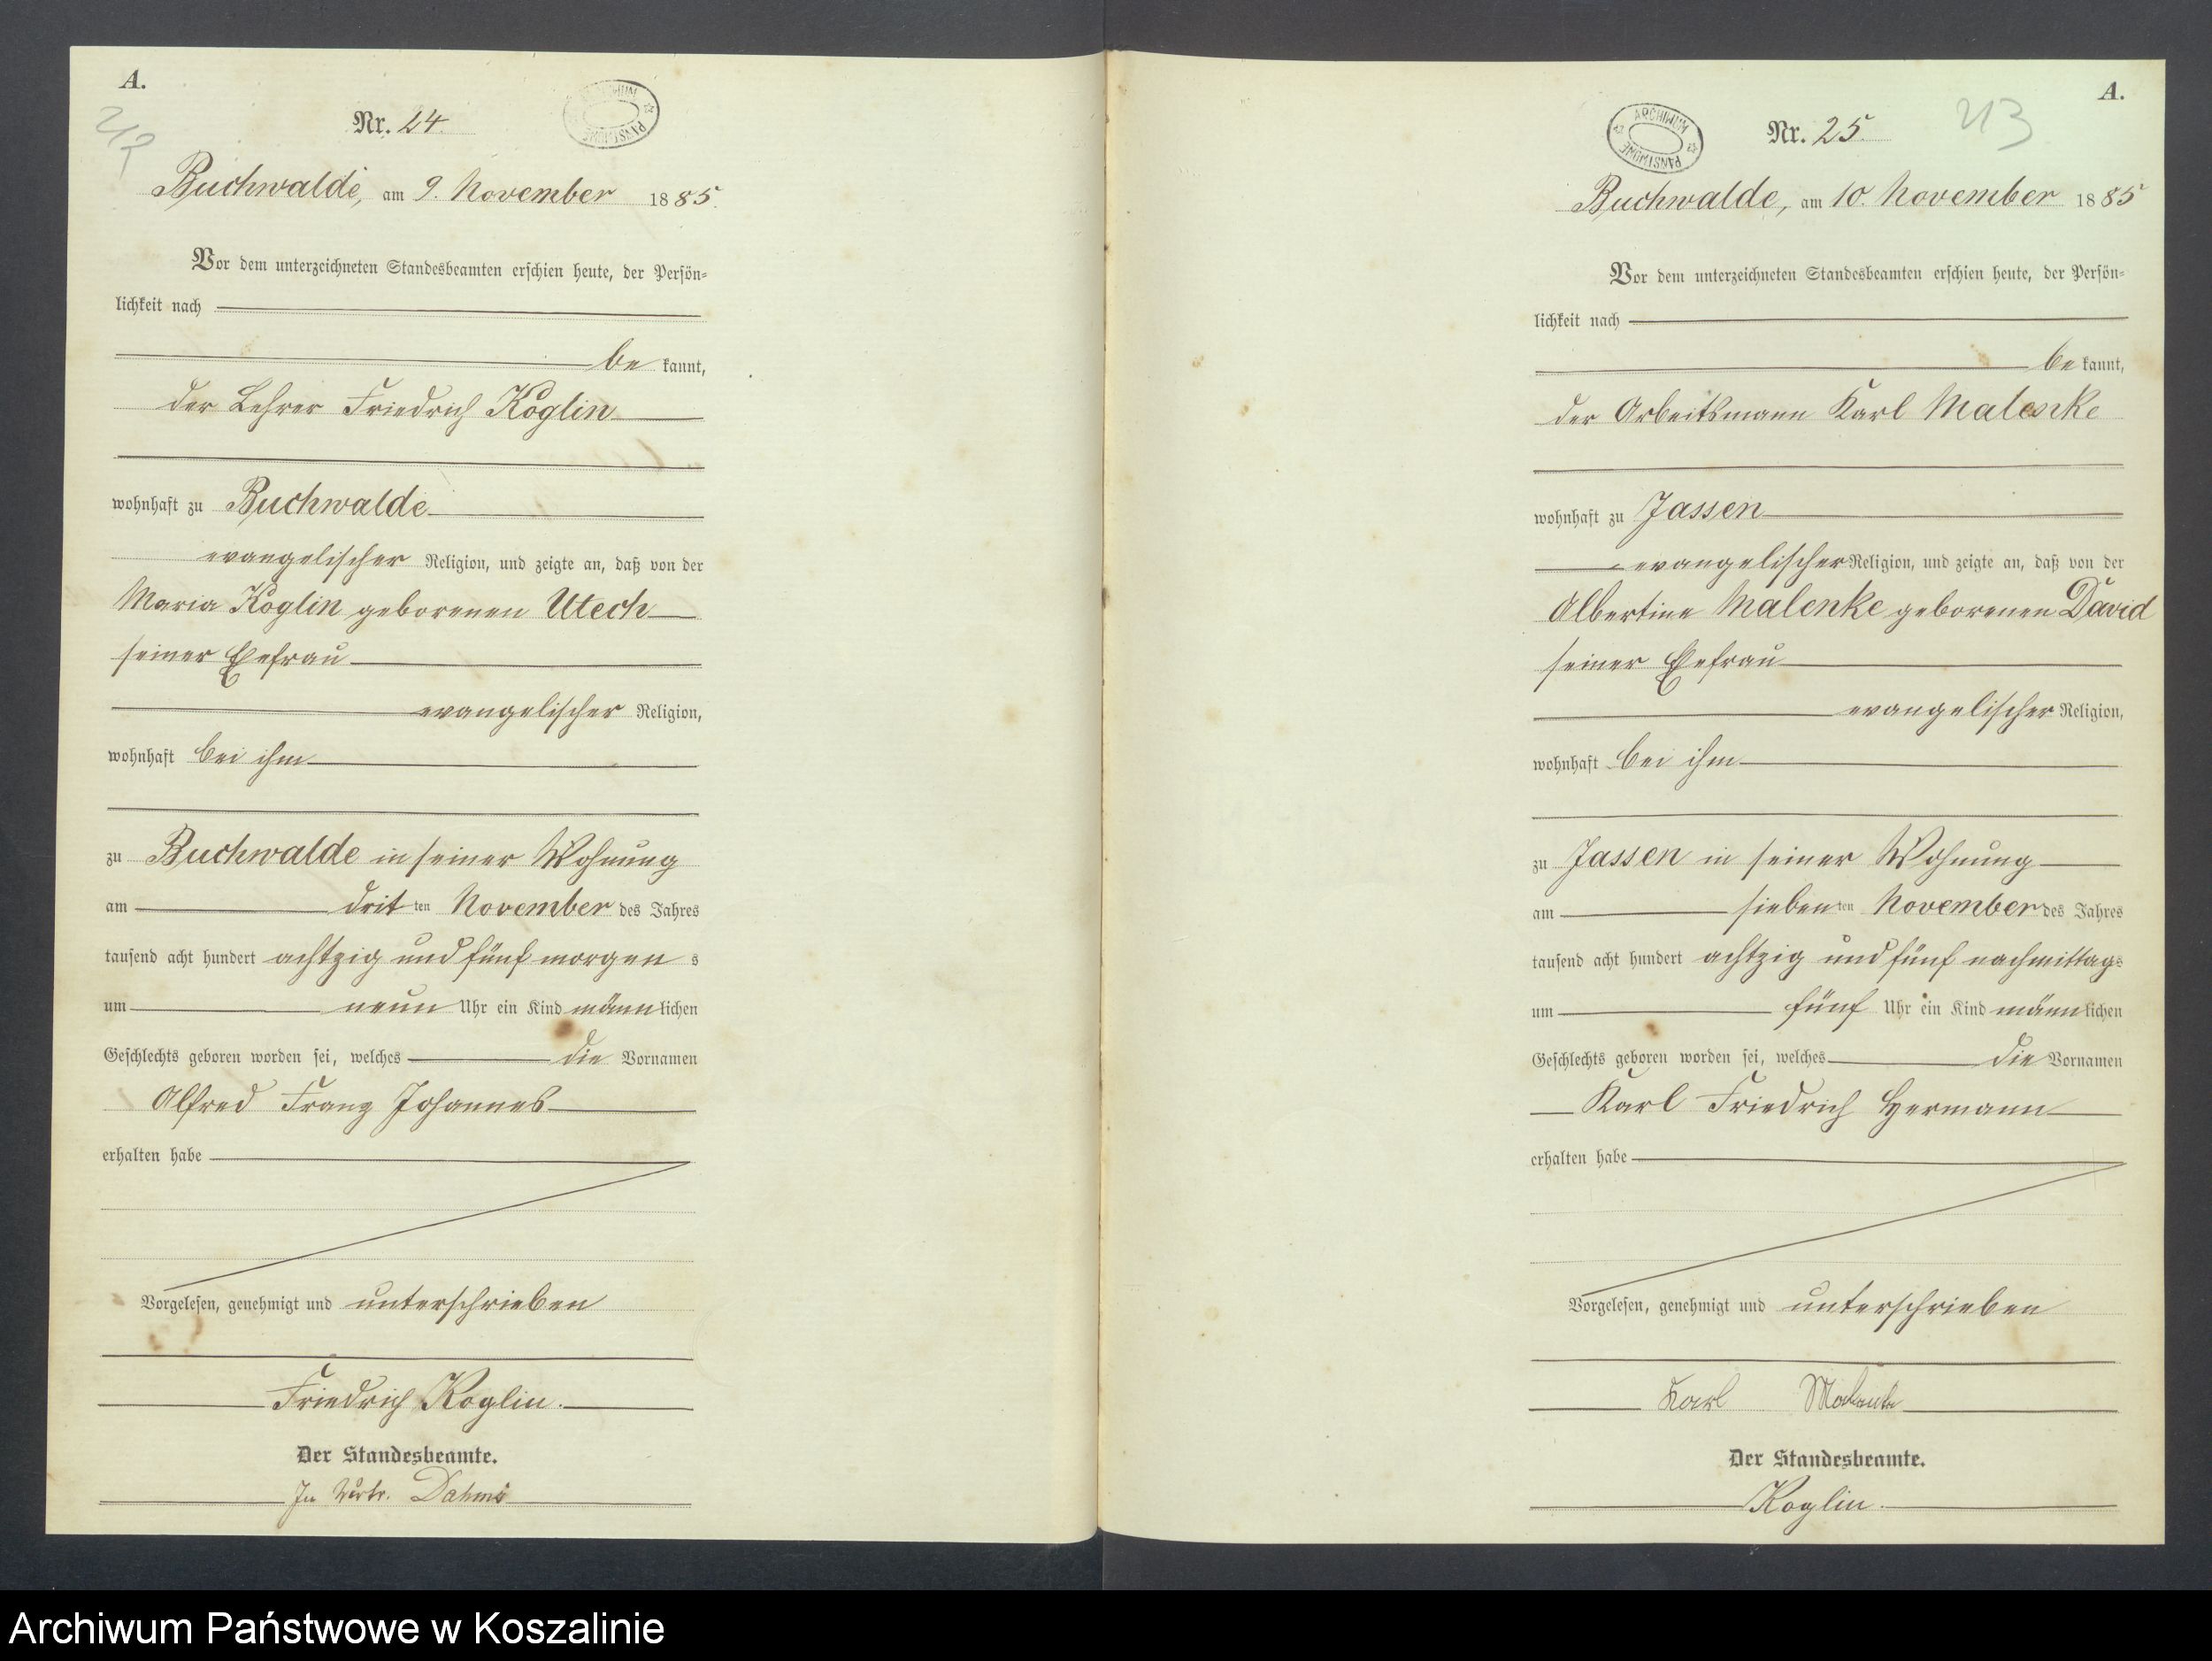 A.
Nr. 24.
ARCHIWUM PAŃSTWOWE
Buchwalde, am 9. November 1885.
Vor dem unterzeichneten Standesbeamten erschien heute, der Persön-
lichkeit nach
be kannt,
der Lehrer Friedrich Koglin
wohnhaft zu Buchwalde
evangelischer Religion, und zeigte an, daß von der
Maria Koglin geborenen Utech
seiner Ehefrau
evangelischer Religion,
wohnhaft bei ihm
zu Buchwalde in seiner Wohnung
am dritten November des Jahres
tausend acht hundert achtzig und fünf morgens
um neun Uhr ein Kind männlichen
Geschlechts geboren worden sei, welches die Vornamen
Alfred Franz Johannes
erhalten habe
Vorgelesen, genehmigt und unterschrieben
Friedrich Koglin.
Der Standesbeamte.
In Vertr. Dahms
A.
213
ARCHIWUM PAŃSTWOWE
Nr. 25.
Buchwalde, am 10. November 1885
Vor dem unterzeichneten Standesbeamten erschien heute, der Persön-
lichkeit nach
be kannt,
der Arbeitsmann Karl Malenke
wohnhaft zu Jassen
evangelischer Religion, und zeigte an, daß von der
Albertine Malenke geborenen David
seiner Ehefrau
evangelischer Religion,
wohnhaft bei ihm
zu Jassen in seiner Wohnung
am siebenten November des Jahres
tausend acht hundert achtzig und fünf nachmittags
um fünf Uhr ein Kind männlichen
Geschlechts geboren worden sei, welches die Vornamen
Karl Friedrich Hermann
erhalten habe
Vorgelesen, genehmigt und unterschrieben
Karl Malenke
Der Standesbeamte.
Koglin.
Archiwum Państwowe w Koszalinie